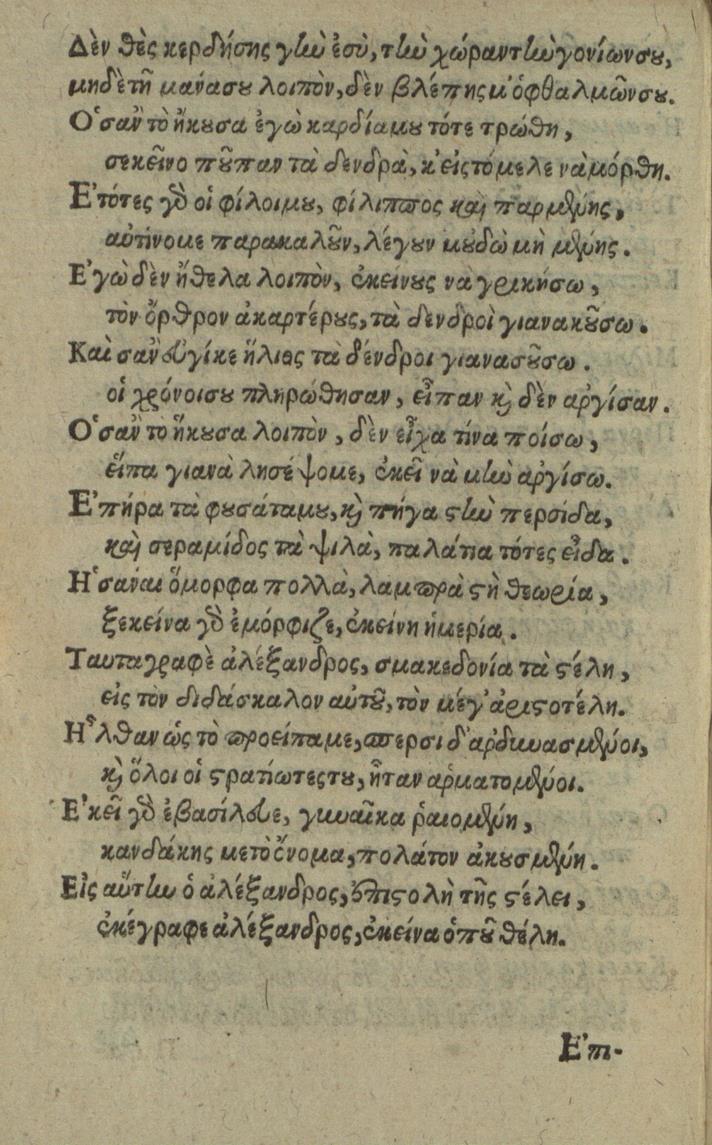 Δὲν θὲς κερδήσης γὴν ἐσὺ, τὴν χώραν τὴν γονίωνσου,
μηδὲ τῆ μάνασου λοιπὸν, δὲν βλέπης μ' ὀφθαλμῶνσου.
Ὁσἂν τὸ ἤκουσα ἐγὼ καρδίαμου τότε τρώθη,
σεκεῖνο ποῦπαν τὰ δενδρὰ, κ' εἰς τὸ μελε νὰ μόρθη.
Ἐτότες γοῦ οἱ φίλοιμου, φίλιππος καὶ παρμένης,
αὐτίνομε παρακαλοῦν, λέγουν μουδὼ μὴ μένης.
Ἐγὼ δὲν ἤθελα λοιπὸν, ἐκείνους νὰ γρικήσω,
τὸν ὄρθρον ἀκαρτέρους, τὰ δενδροὶ γιανακοῦσω.
Καὶ σἂν εὐγίκε ἥλιος τὰ δένδροι γιανασοῦσω.
οἱ χρόνοισου πληρώθησαν, εἶπαν κὶ δὲν ἀργίσαν.
Ὁσἂν το ἤκουσα λοιπὸν, δὲν εἶχα τίνα ποίσω,
εἶπα γιανὰ λησέψομε, ἐκεῖ νὰ μὴν ἀργίσω.
Ἐπήρα τὰ φουσάταμου, κὶ πήγα στὴν περσίδα,
καὶ σεραμίδος τὰ ψιλὰ, παλάτια τότες εἶδα.
Ἡσαναι ὄμορφα πολλὰ, λαμπρὰ στὴ θεωρία,
ξεκείνα γοῦ ἐμόρφιζε, ἐκείνη ἡμερία.
Ταυταγραφὲ ἀλέξανδρος, σμακεδονία τὰ στέλη,
εἰς τὸν διδάσκαλον αὐτοῦ, τὸν μέγ' ἀριστοτέλη.
Ἦλθαν ὡς τὸ προείπαμε, περσιδ' ἀρδινιασμένοι,
κὶ ὅλοι οἱ στρατιώτεστου, ἦταν ἁρματομένοι.
Ἐκεῖ γοῦ ἐβασίλευε, γυναῖκα ῥαιομένη,
κανδάκης μετὄνομα, πολάτον ἀκουσμένη.
Εἰς αὔτην ὁ ἀλέξανδρος, ἐπιστολὴ τῆς στέλει,
ἐκέγραφε ἀλέξανδρος, ἐκείνα ὁποῦ θέλη.
Ἐπι-